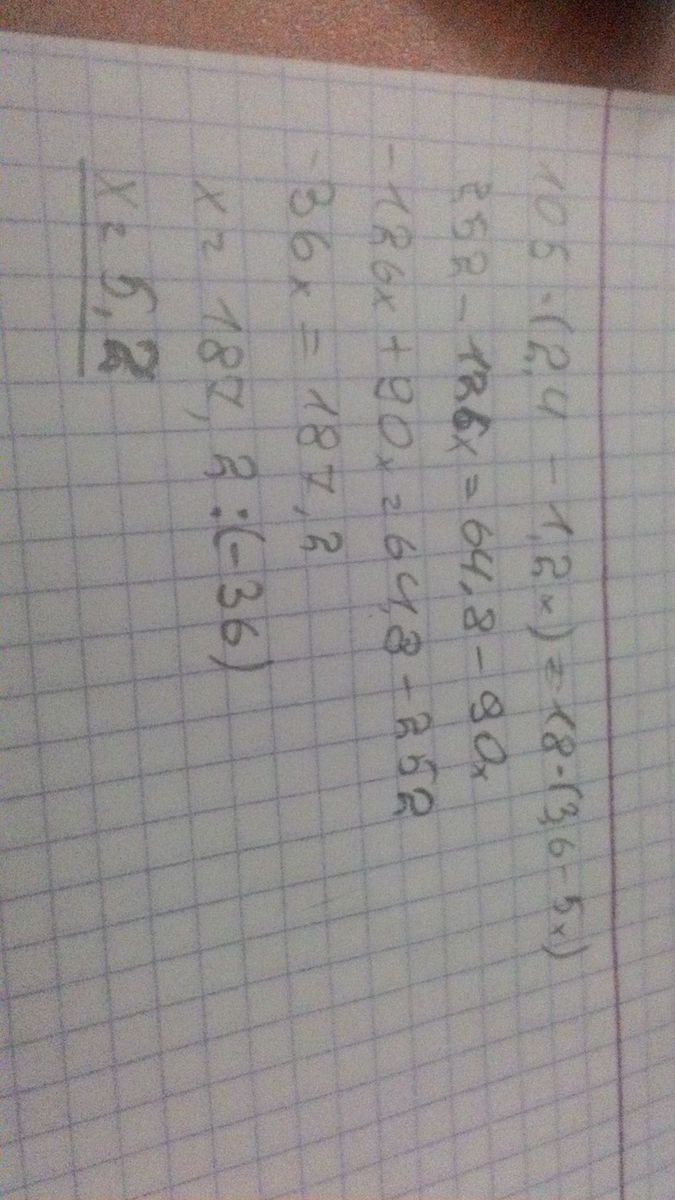 105·(2,4 - 1,2x) = 18·(3,6 - 5x)
252 - 126x = 64,8 - 90x
- 126x + 90x = 64,8 - 252
- 36x = 187,2
x = 187,2 : (-36)
x = 5,2